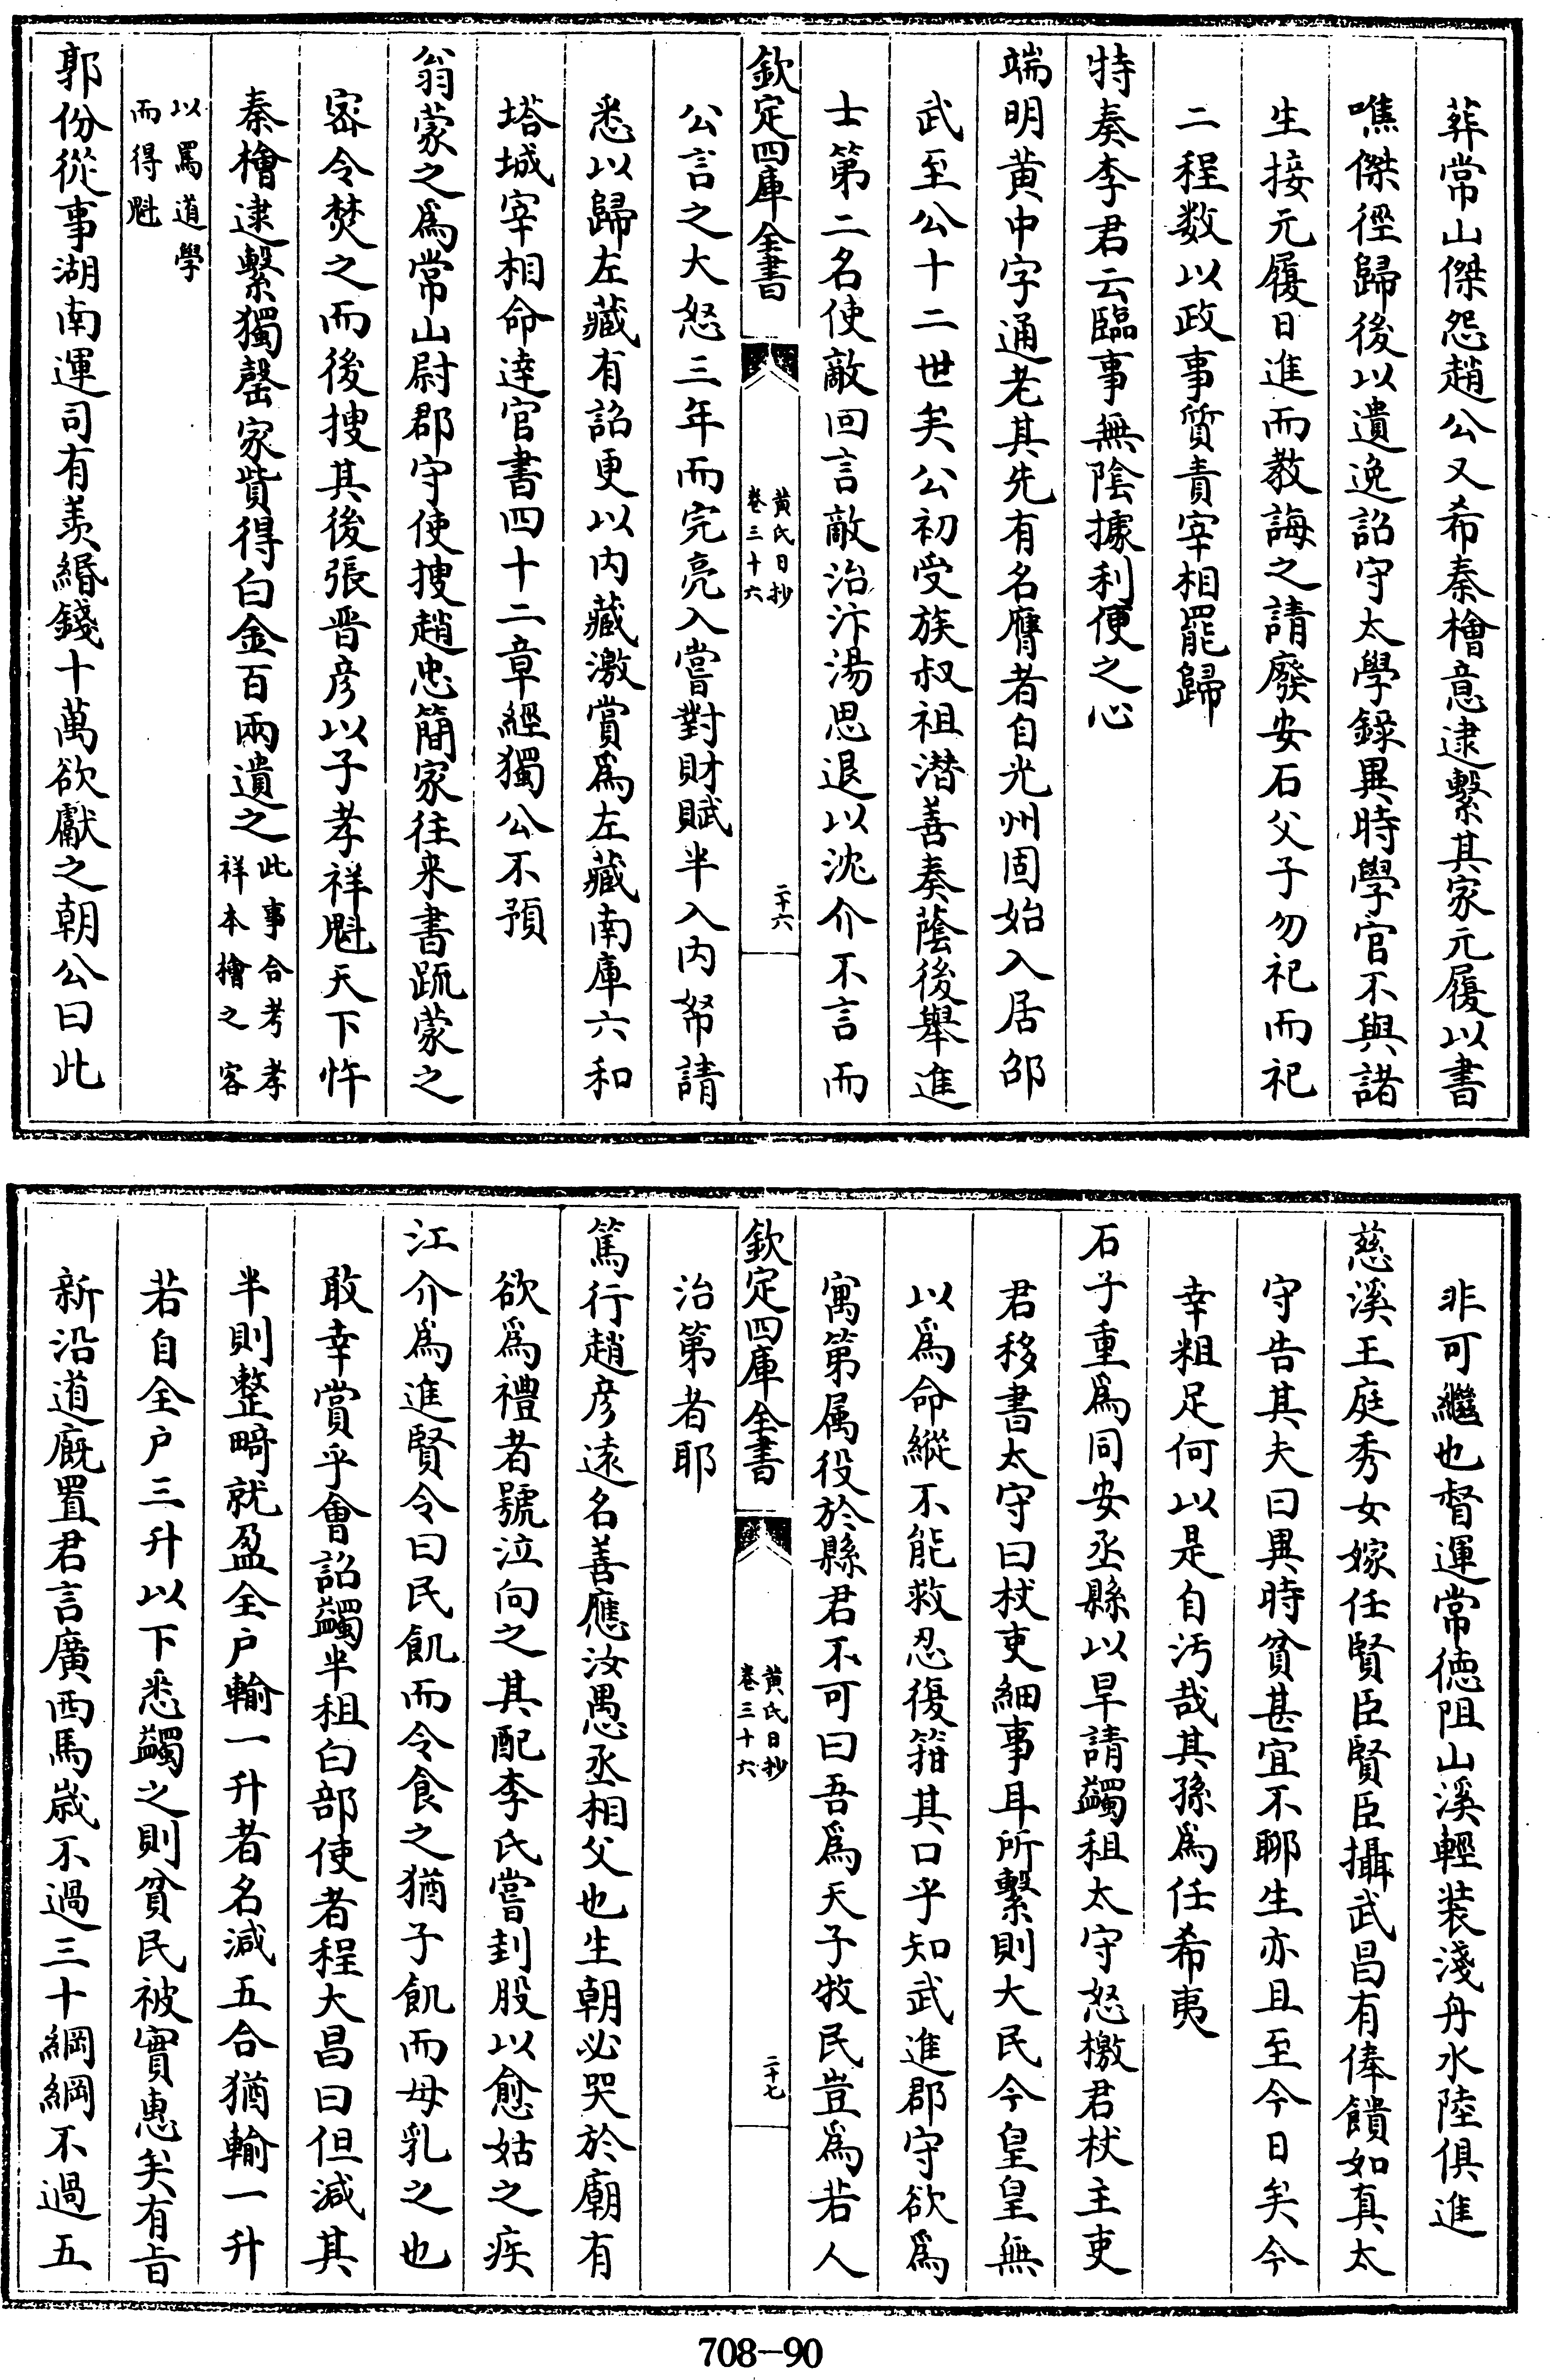 葬常山傑怨趙公又希秦檜意逮繫其家元履以書
噍傑徑歸後以遺逸詔守太學錄異時學官不與諸
生接元履日進而教誨之請廢安石父子勿祀而祀
二程数以政事質責宰相罷歸
特奏李君云臨事無陰據利便之心
端明黄中字通老其先有名膺者自光州固始入居邵
武至公十二世矣公初受族叔祖潜善奏蔭後舉進
士第二名使敵回言敵治汴湯思退以沈介不言而
欽定四庫全書
黄氏日抄
卷三十六
二十六
公言之大怒三年而完亮入嘗對財賦半入内帑請
悉以歸左藏有詔更以内藏激賞爲左藏南庫六和
塔城宰相命逹官書四十二章經獨公不預
翁蒙之爲常山尉郡守使搜趙忠簡家往来書䟽蒙之
宻令焚之而後搜其後張晋彦以子孝祥魁天下忤
秦檜逮繫獨罄家貲得白金百兩遺之此事合考孝
祥本檜之客
以罵道學
而得魁
郭份從事湖南運司有羡緡錢十萬欲獻之朝公曰此
非可繼也督運常徳阻山溪輕装淺舟水陸俱進
慈溪王庭秀女嫁任賢臣賢臣攝武昌有俸饋如真太
守告其夫曰異時貧甚宜不聊生亦且至今日矣今
幸粗足何以是自汚哉其孫爲任希夷
石子重爲同安丞縣以旱請蠲租太守怒檄君杖主吏
君移書太守曰杖吏細事耳所繫則大民今皇皇無
以爲命縱不能救忍復箝其口乎知武進郡守欲爲
寓第属役於縣君不可曰吾爲天子牧民豈爲若人
欽定四庫全書
黄氏日抄
卷三十六
二十七
治第者耶
篤行趙彦遠名善應汝愚丞相父也生朝必哭於廟有
欲爲禮者號泣向之其配李氏嘗刲股以愈姑之疾
江介爲進賢令曰民飢而令食之猶子飢而母乳之也
敢幸賞乎會詔蠲半租白部使者程大昌曰但減其
半則整畸就盈全户輸一升者名減五合猶輸一升
若自全户三升以下悉蠲之則貧民被實惠矣有㫖
新沿道廐置君言廣西馬嵗不過三十綱綱不過五
708—90